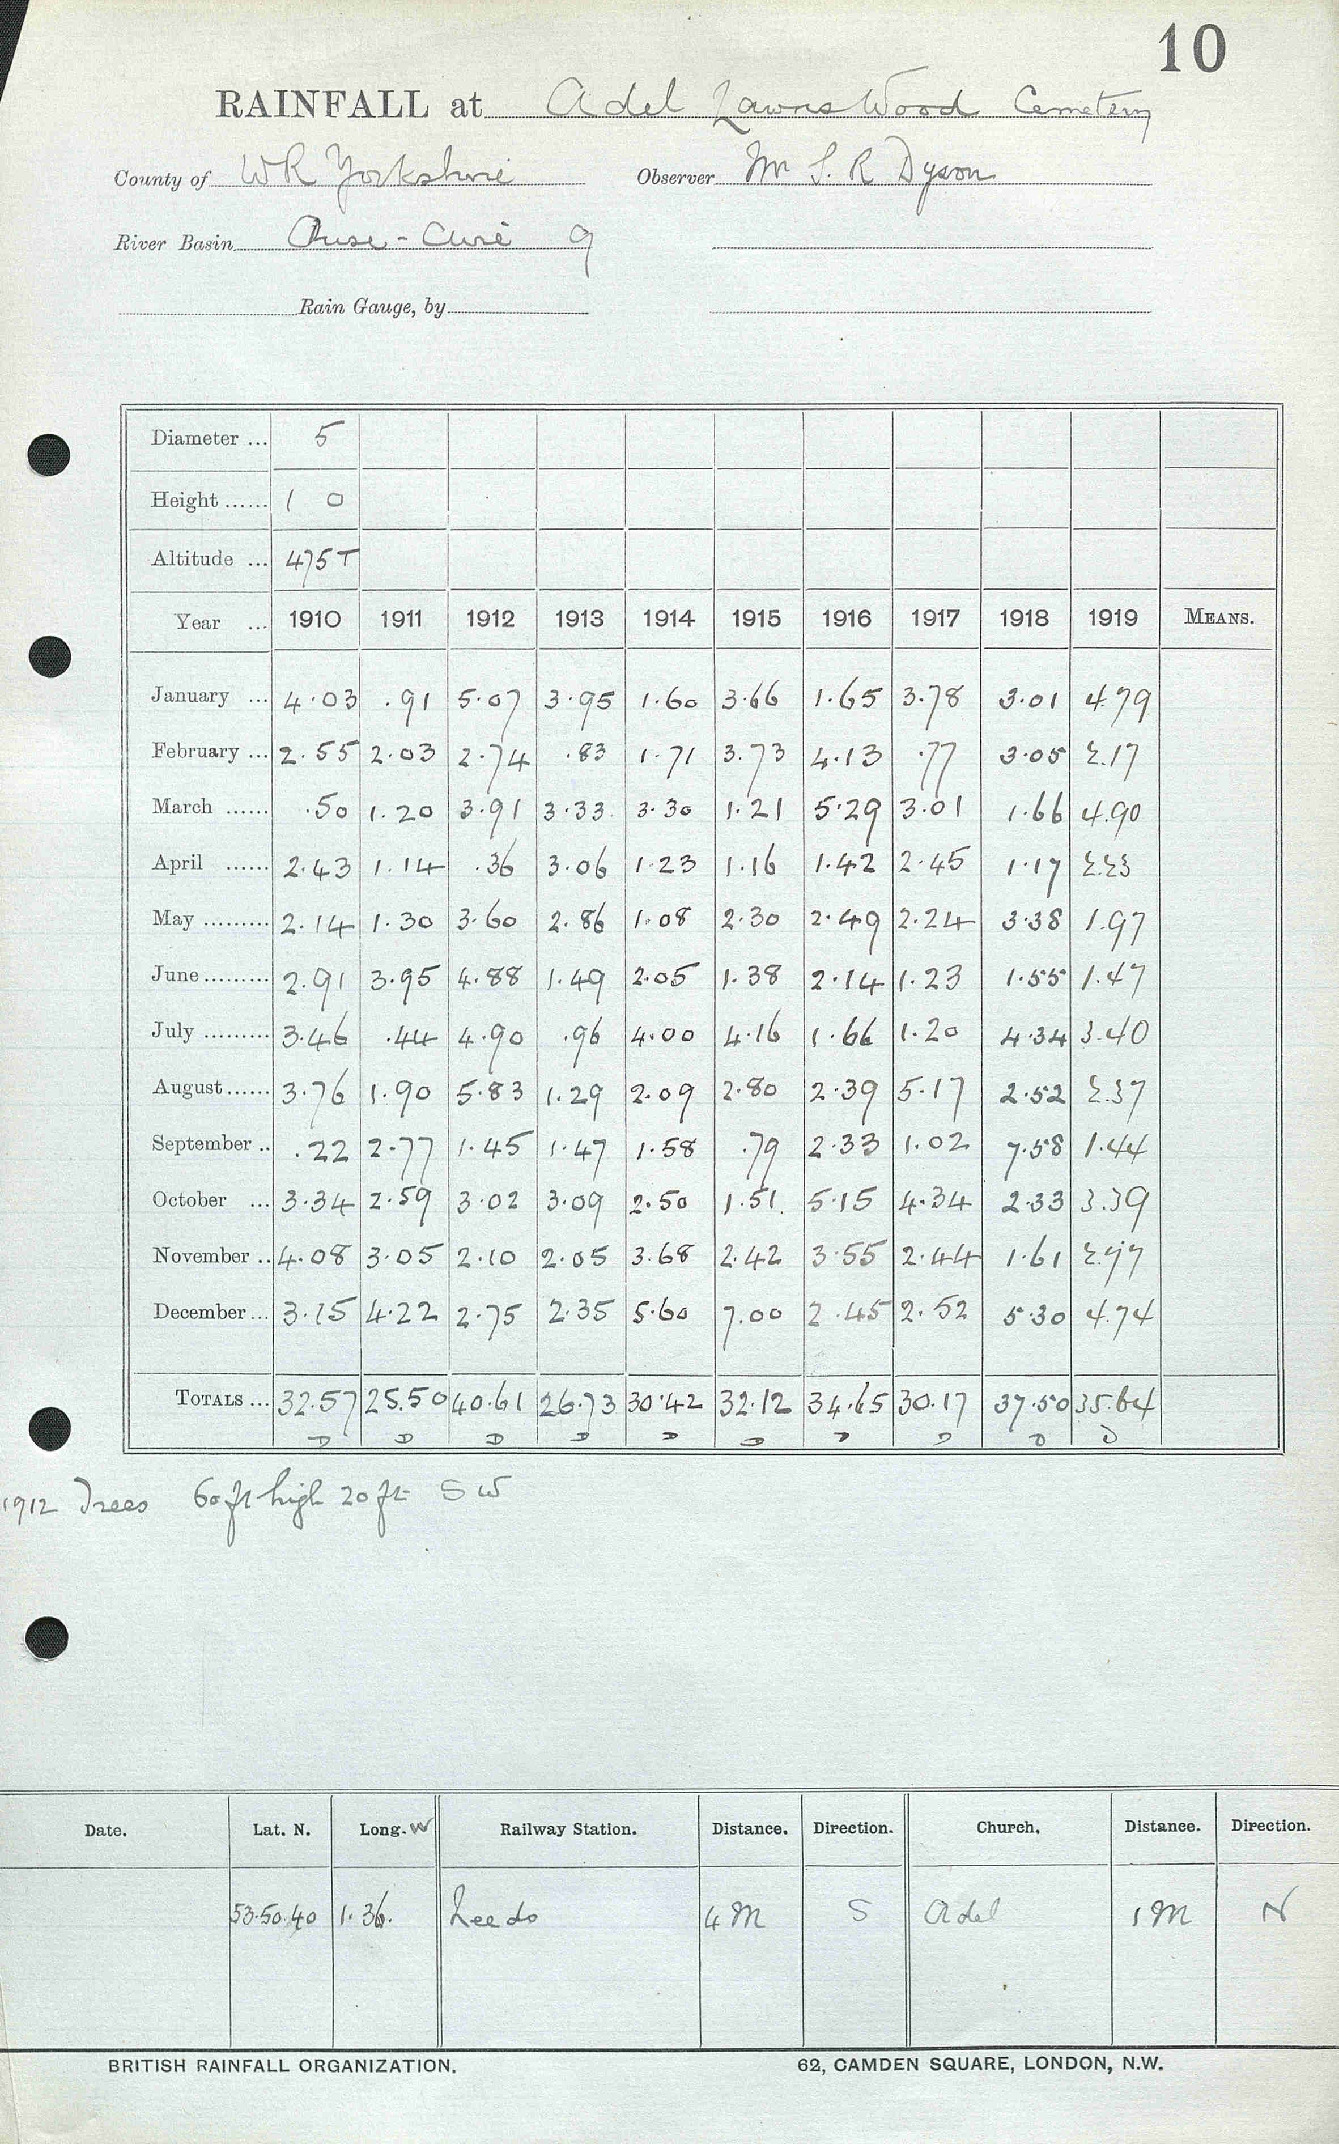 10
RAINFALL at Adel Lawns Wood Cemetery
County of WR Yorkshire Observer Mr S. R Dyson
River Basin Ouse - Aire 9
Rain Gauge, by
Diameter ... 5
Height ...... 1 0
Altitude ... 475 T
Year ... 1910 1911 1912 1913 1914 1915 1916 1917 1918 1919 MEANS.
January ... 4.03 .91 5.07 3.95 1.60 3.66 1.65 3.78 3.01 4.79
February ... 2.55 2.03 2.74 .83 1.71 3.73 4.13 .77 3.05 2.17
March ...... .50 1.20 3.91 3.33 3.30 1.21 5.29 3.01 1.66 4.90
April ...... 2.43 1.14 .36 3.06 1.23 1.16 1.42 2.45 1.17 2.23
May ......... 2.14 1.30 3.60 2.86 1.08 2.30 2.49 2.24 3.38 1.97
June ......... 2.91 3.95 4.88 1.49 2.05 1.38 2.14 1.23 1.55 1.47
July ......... 3.46 .44 4.90 .96 4.00 4.16 1.66 1.20 4.34 3.40
August ...... 3.76 1.90 5.83 1.29 2.09 2.80 2.39 5.17 2.52 2.37
September .. .22 2.77 1.45 1.47 1.58 .79 2.33 1.02 7.58 1.44
October ... 3.34 2.59 3.02 3.09 2.50 1.51. 5.15 4.34 2.33 3.39
November .. 4.08 3.05 2.10 2.05 3.68 2.42 3.55 2.44 1.61 2.77
December ... 3.15 4.22 2.75 2.35 5.60 7.00 2.45 2.52 5.30 4.74
TOTALS ... 32.57 25.50 40.61 26.73 30.42 32.12 34.65 30.17 37.50 35.64
D D D D D D D D D D
1912 Trees 60 ft high 20 ft SW
Date. Lat. N. Long. W Railway Station. Distance. Direction. Church. Distance. Direction.
53.50.40 1.36. Leeds 4 M S Adel 1 M N
BRITISH RAINFALL ORGANIZATION. 62, CAMDEN SQUARE, LONDON, N.W.